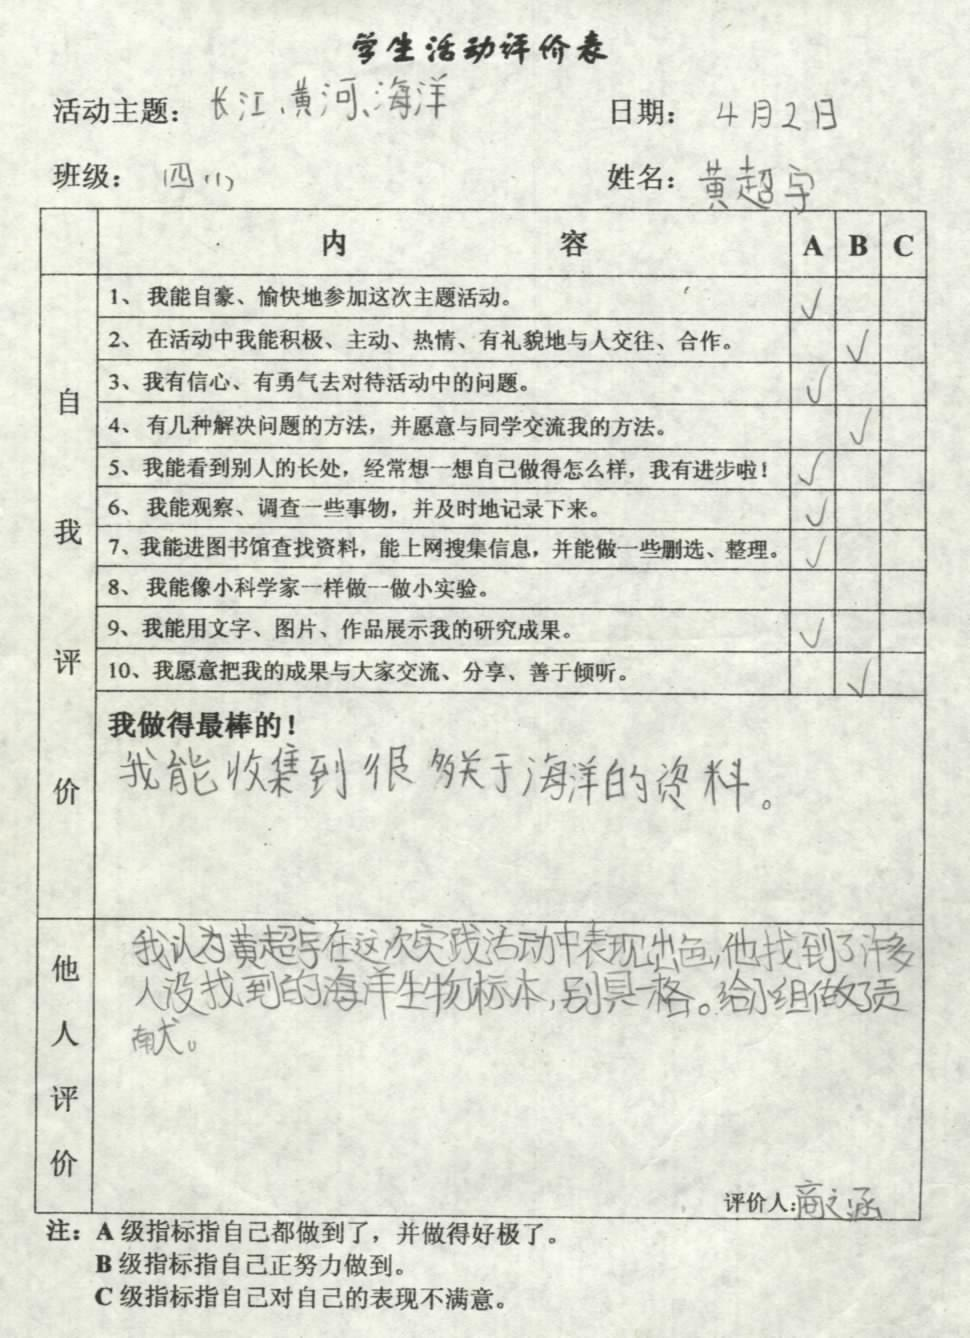 学生活动评价表
活动主题：长江、黄河、海洋 日期：4月2日
班级：四(1) 姓名：黄超宇
内 容 A B C
自我评价
1、我能自豪、愉快地参加这次主题活动。 ✓
2、在活动中我能积极、主动、热情、有礼貌地与人交往、合作。 ✓
3、我有信心、有勇气去对待活动中的问题。 ✓
4、有几种解决问题的方法，并愿意与同学交流我的方法。 ✓
5、我能看到别人的长处，经常想一想自己做得怎么样，我有进步啦！ ✓
6、我能观察、调查一些事物，并及时地记录下来。 ✓
7、我能进图书馆查找资料，能上网搜集信息，并能做一些删选、整理。 ✓
8、我能像小科学家一样做一做小实验。
9、我能用文字、图片、作品展示我的研究成果。 ✓
10、我愿意把我的成果与大家交流、分享、善于倾听。 ✓
我做得最棒的！
我能收集到很多关于海洋的资料。
他人评价
我认为黄超宇在这次实践活动中表现出色,他找到了许多
人没找到的海洋生物标本,别具一格。给小组做了贡
献。
评价人:商之涵
注：A 级指标指自己都做到了，并做得好极了。
B 级指标指自己正努力做到。
C 级指标指自己对自己的表现不满意。